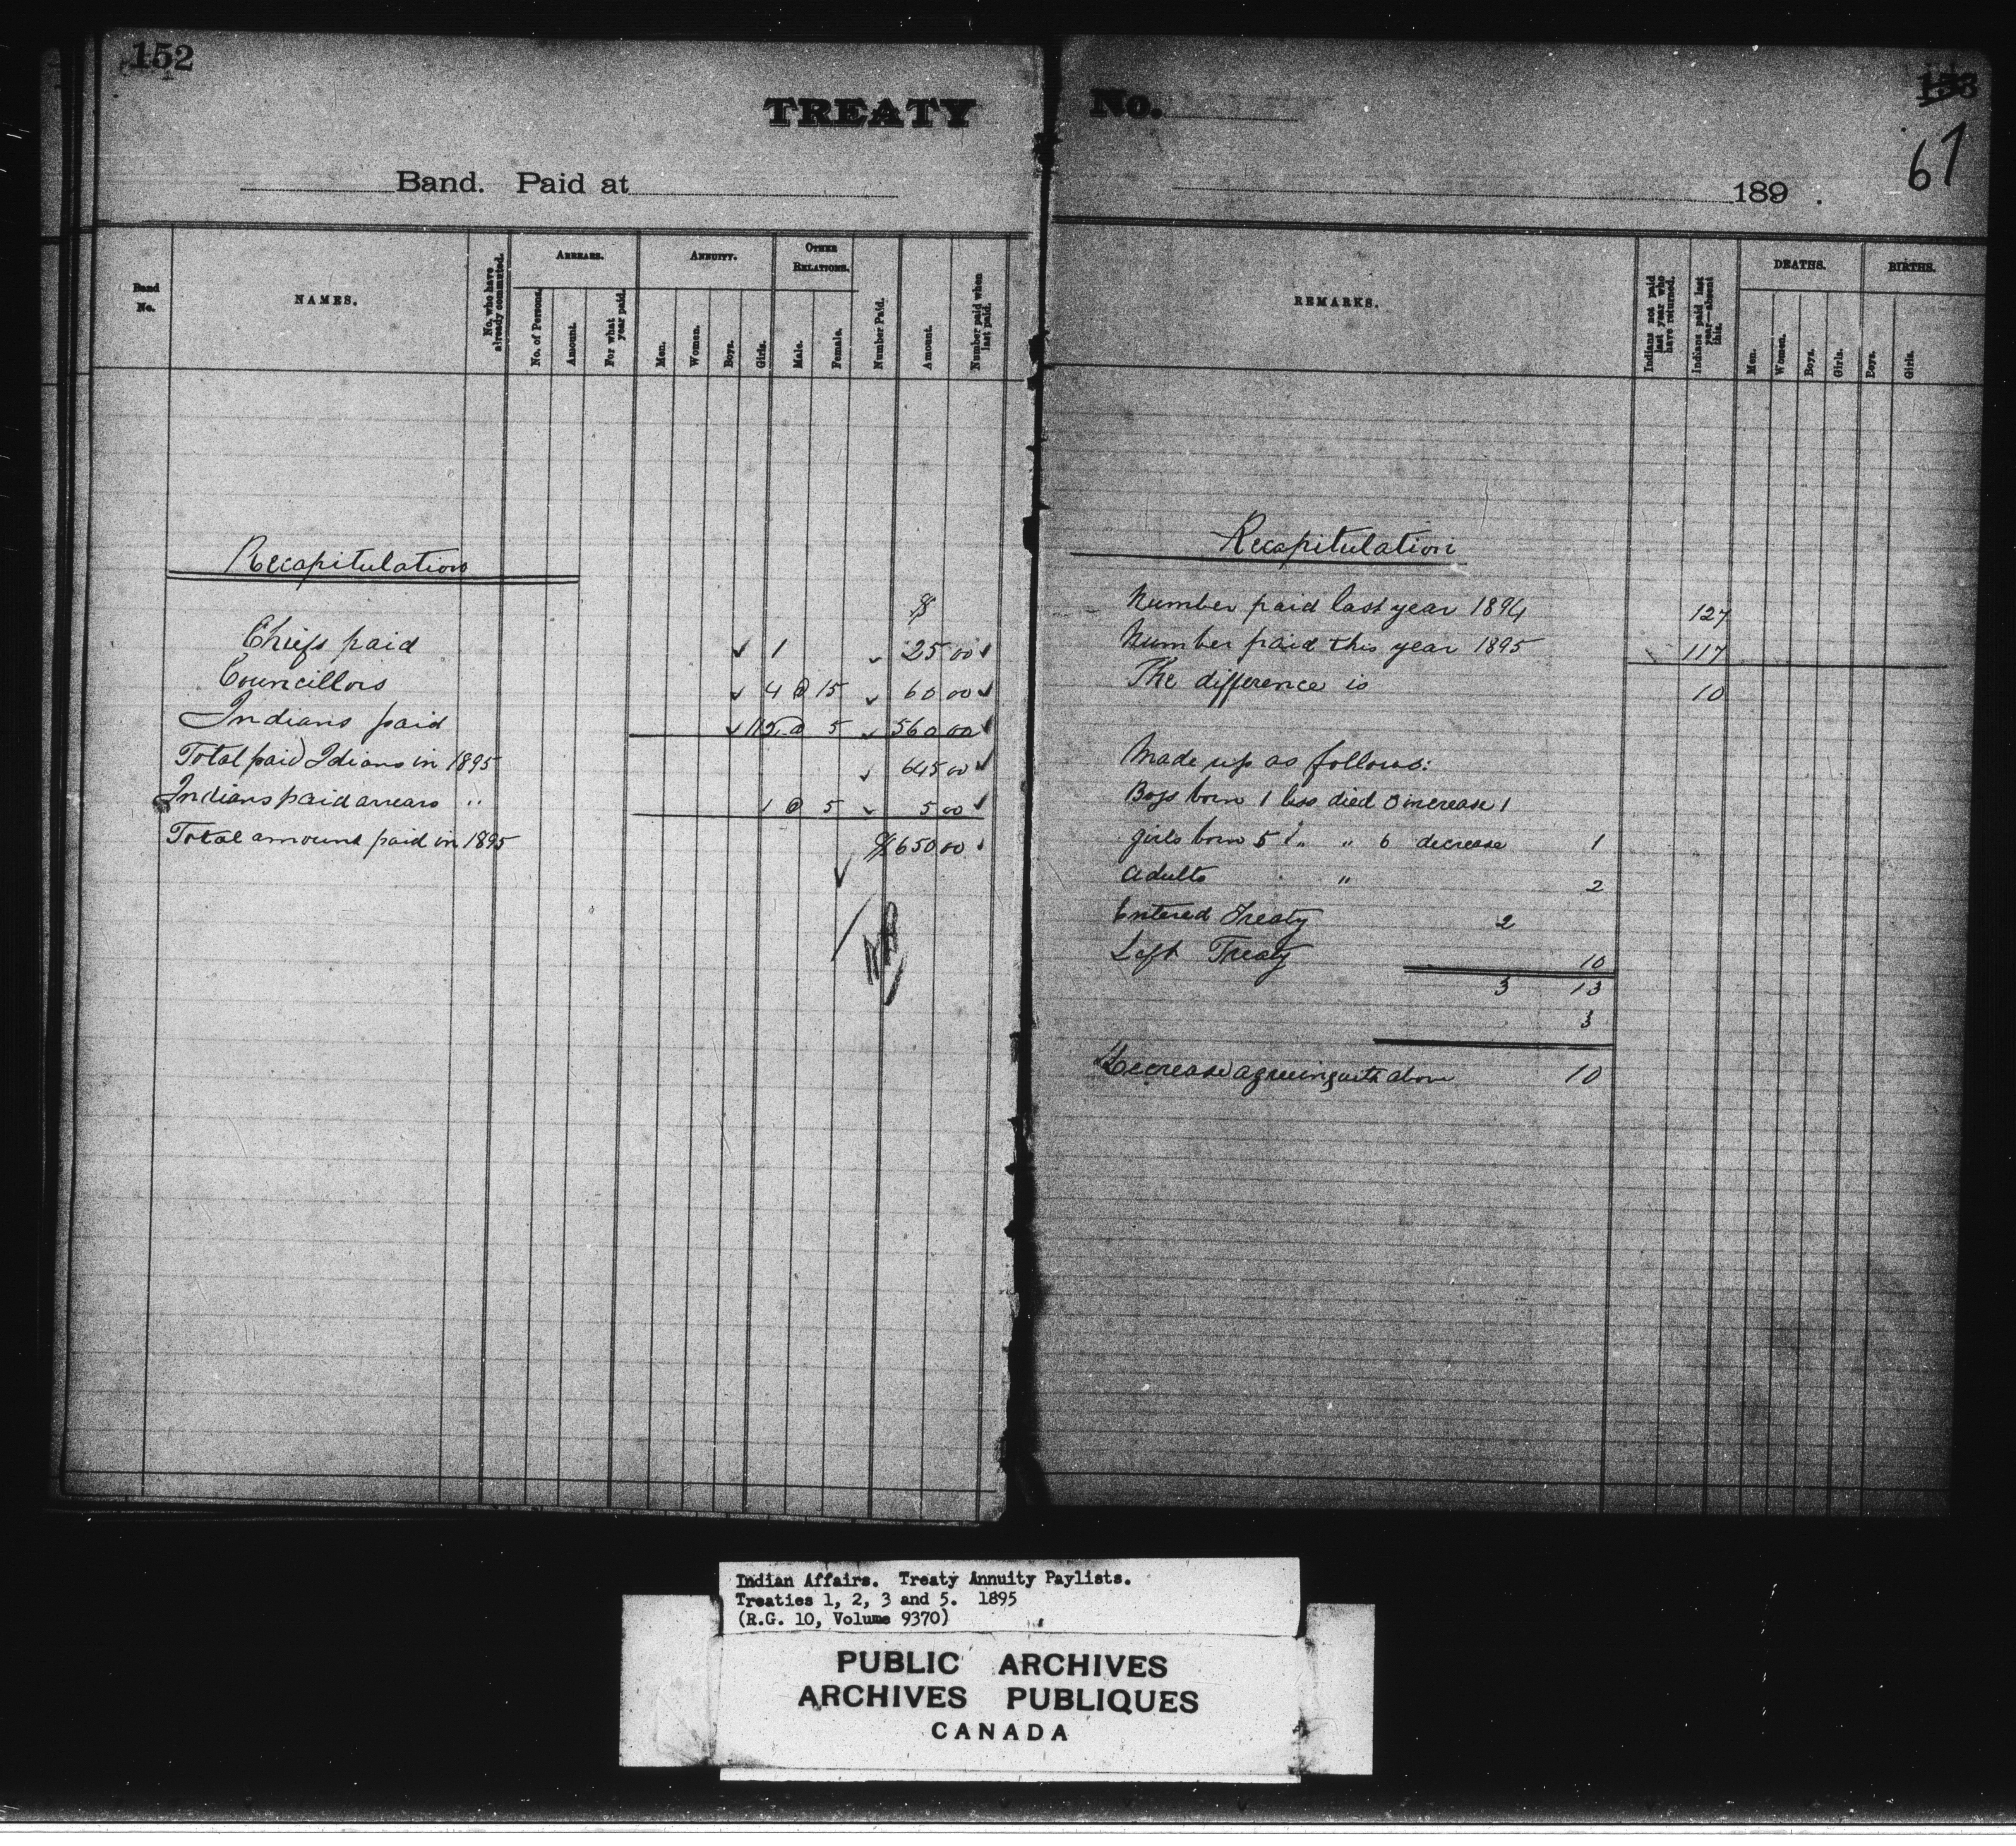 152
TREATY
Band. Paid at
Band No.
NAMES.
No. who have already commuted.
ARREARS.
No. of Persons.
Amount.
For what year paid.
ANNUITY.
Men.
Women.
Boys.
Girls.
OTHER RELATIONS.
Male.
Female.
Number Paid.
Amount.
Number paid when last paid.
Recapitulation
$
Chiefs paid ✓ 1 ✓ 25 00 ✓
Councillors ✓ 4 @ 15 ✓ 60 00 ✓
Indians paid ✓ 112 @ 5 ✓ 560 00 ✓
Total paid Idians in 1895 ✓ 645 00 ✓
Indians paid arrears " 1 @ 5 ✓ 5 00 ✓
Total amount paid in 1895 $650 00 ✓
No.
153
67
189 .
REMARKS.
Indians not paid last year who have returned.
Indians paid last year—absent this.
DEATHS.
Men.
Women.
Boys.
Girls.
BIRTHS.
Boys.
Girls.
Recapitulation
Number paid last year 1894 127
Number paid this year 1895 117
The difference is 10
Made up as follows:
Boys born 1 less died 0 increase 1
girls born 5 " " 6 decrease 1
adults " 2
Entered Treaty 2
Left Treaty 10
3 13
3
Decrease agreeing with above 10
Indian Affairs. Treaty Annuity Paylists.
Treaties 1, 2, 3 and 5. 1895
(R.G. 10, Volume 9370)
PUBLIC ARCHIVES
ARCHIVES PUBLIQUES
CANADA